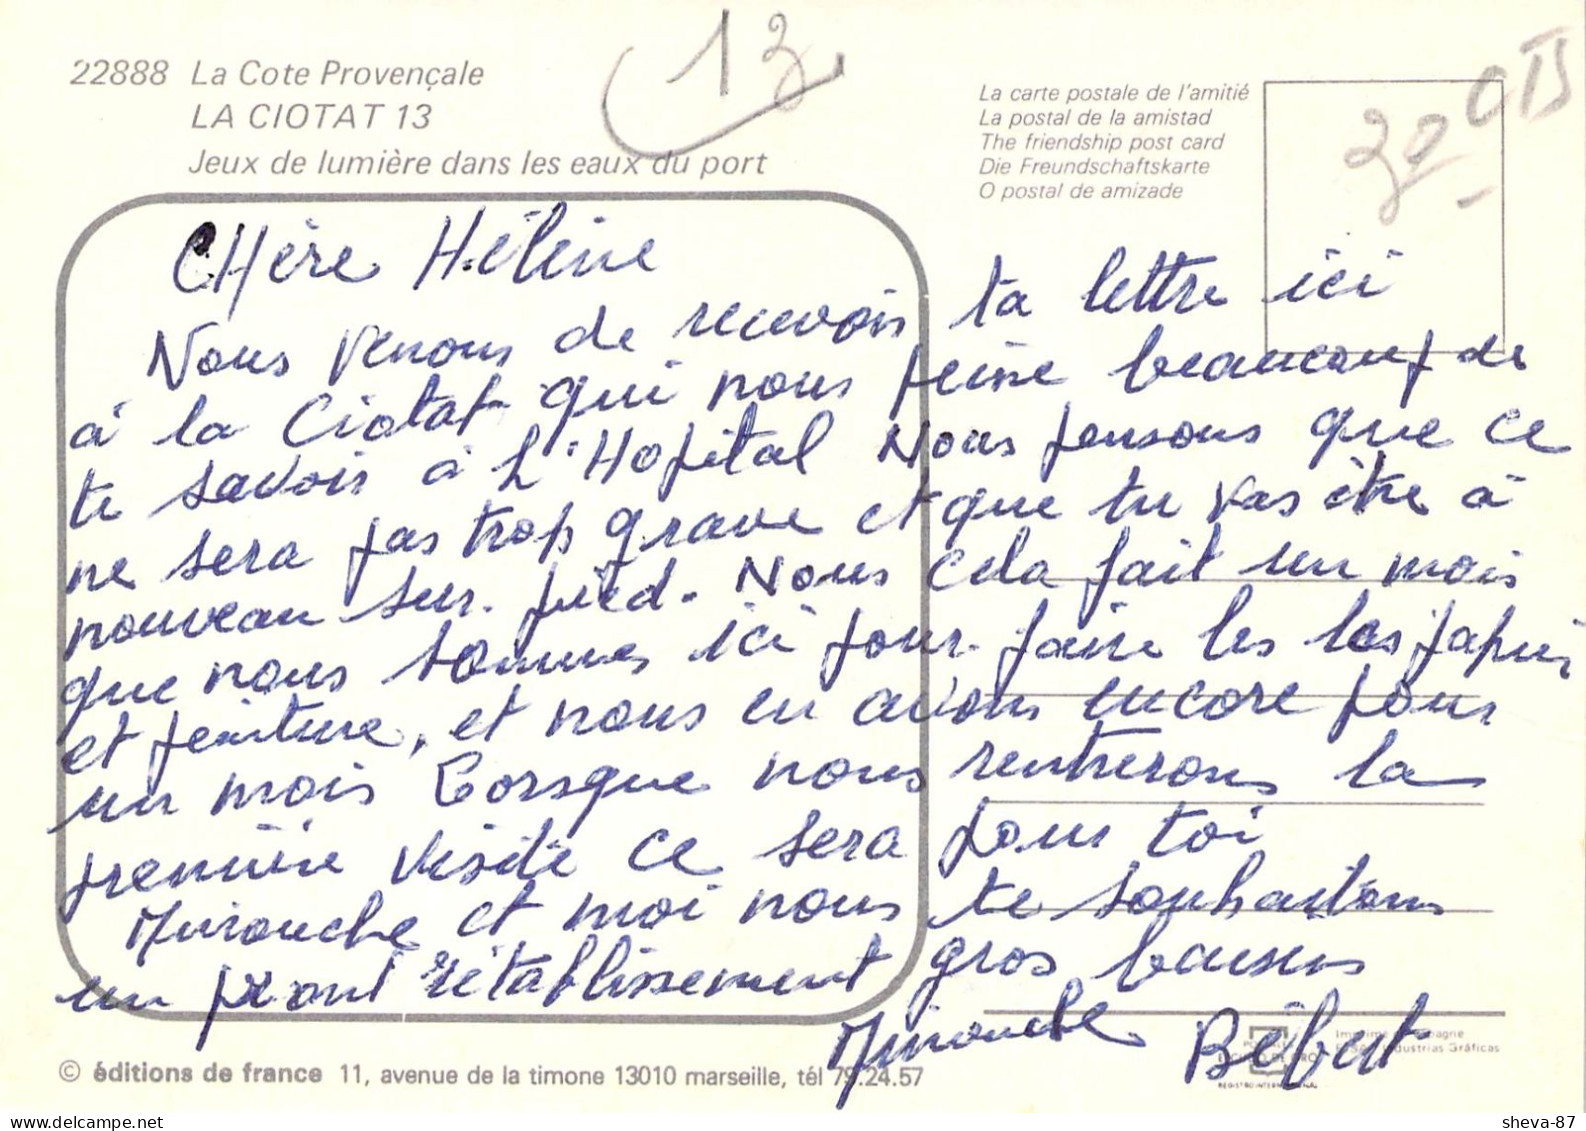 22888 La Cote Provençale
LA CIOTAT 13
Jeux de lumière dans les eaux du port
13
La carte postale de l'amitié
La postal de la amistad
The friendship post card
Die Freundschaftskarte
O postal de amizade
CHère Hélène
Nous venons de recevoir ta lettre ici
à la Ciotat qui nous peine beaucoup de
te savoir à L'Hopital Nous pensons que ce
ne sera pas trop grave et que tu vas être à
nouveau sur pied. Nous cela fait un mois
que nous sommes ici pour faire les papier
et peinture, et nous en avons encore pour
un mois Lorsque nous rentrerons la
première visite ce sera pour toi
Minouche et moi nous te souhaitons
un pront rétablissement gros baisers
Minouche Bébert
© éditions de france 11, avenue de la timone 13010 marseille, tél 79.24.57
sheva-87